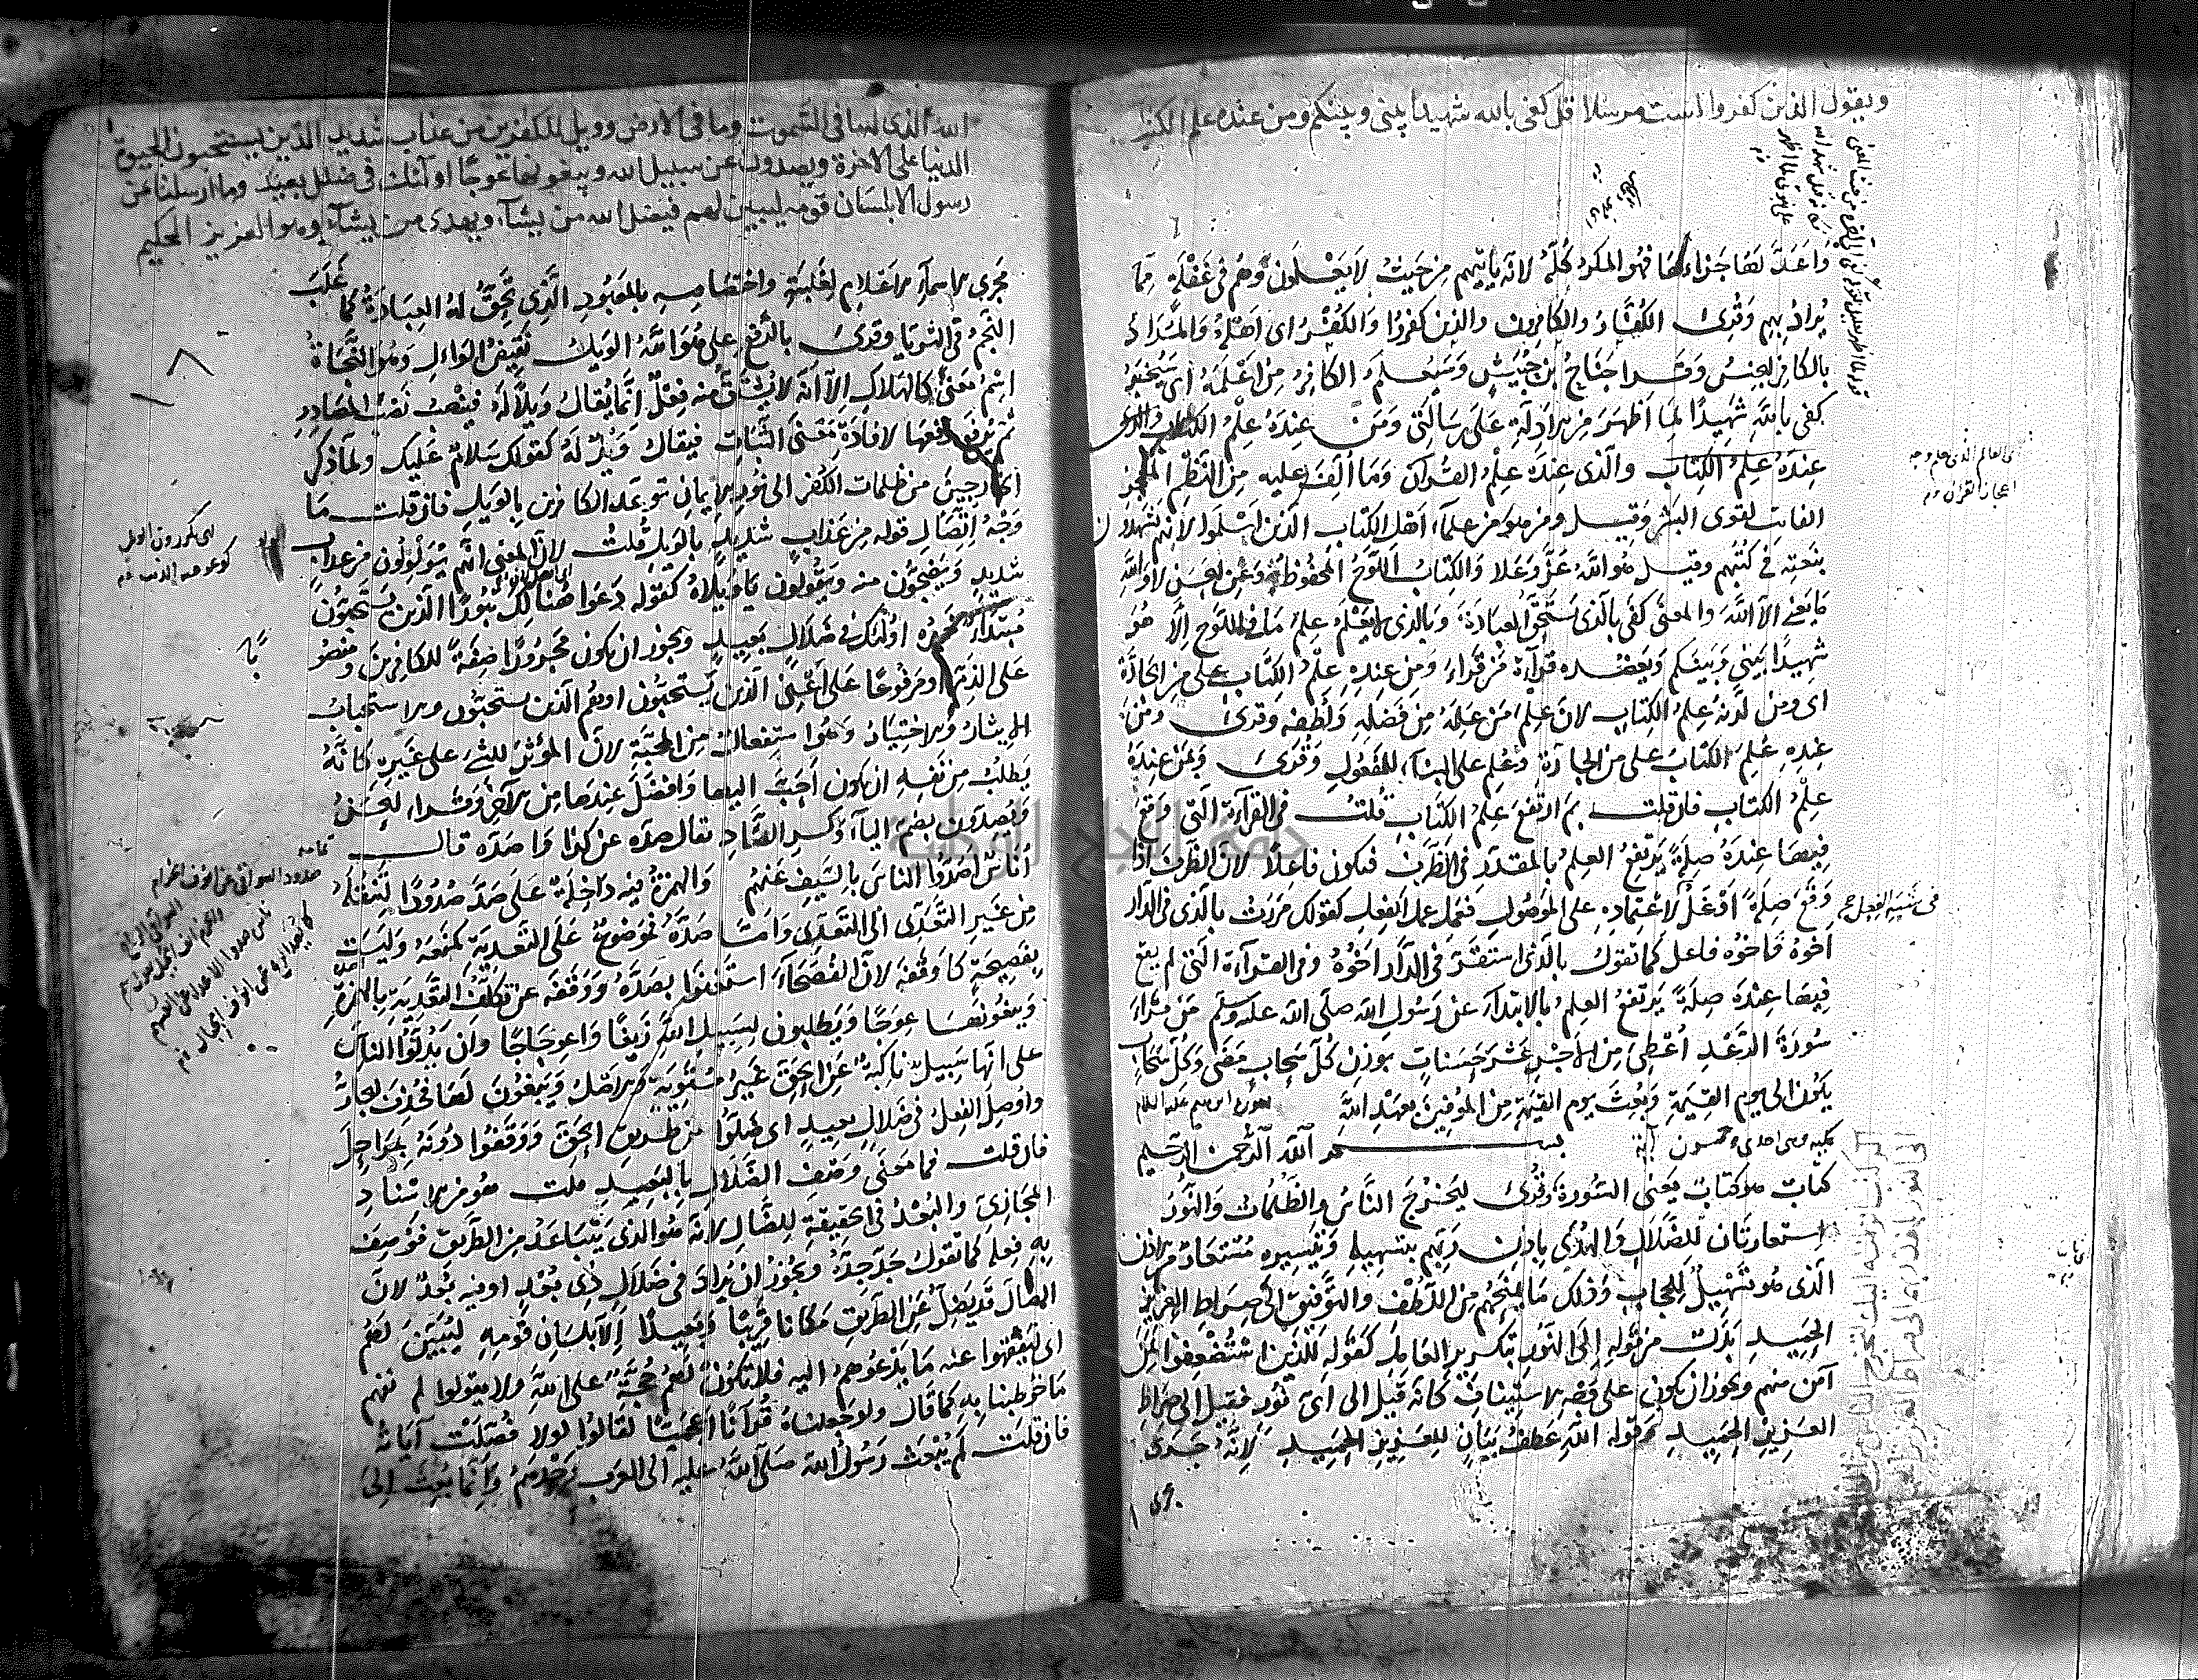 ويقول الذين كفروا لست مرسلا قل كفى بالله شهيدا بيني وبينكم ومن عنده علم الكتب
وَاَعَدَّ لَهَا جَزَاءَهَا فهُو المكرُ كُلُّهُ لانه يَاتيهم مِن حَيثُ لا يَعْلمُون وَهُم فى غَفلَةٍ مِمّا
يُرَادُ بِهِم وَقُرِئَ الكُفَّارُ والكَافِرون والذين كفرُوا وَالكُفْرُ اى اَهلُهُ وَالمُرَادُ
بالكافِر الجِنسُ وَقَرا جَنَاحُ بن حُبَيشٍ وَسَيُعلَمُ الكَافِرُ مِن اَعْلَمَهُ اى سَيُخبَرُ
كفى باللهِ شَهِيدًا لِمَا اَظهَرَ مِن الادِلَّةِ عَلى رِسَالَتى وَمَن عِندَهُ عِلمُ الكِتَابِ والذى
عِندَهُ عِلمُ الكِتَابِ والّذى عِندَهُ عِلمُ القُرآنِ وَمَا اُلِّفَ عليه مِنَ النَّظمِ المُعجِزِ
الفائِت لقوى البَشَر وَقيل ومن هو من علماء اَهل الكِتَاب الّذين اَسلَموا لانهم يَشهدون
بنَعتِه فى كُتُبِهم وقيل هُو اللهُ عَزَّ وَعَلا وَالكِتَابُ اللَّوحُ المَحفُوظُ وَعَن الحَسَن لا وَاللهِ
مَا يَعنى الا اللهَ والمعنى كفَى بالّذى يَستَحِقُّ العِبَادَةَ وَبالذى لا يَعلَمُ عِلمَ مَا فى اللّوحِ اِلّا هُو
شَهيدًا بَينى وَبَينَكم وَيَعضُده قِراءَةُ مَن قَرَاءَ وَمِن عِندِهِ عِلمُ الكِتَابِ على مِن الجَارَّةِ
اى ومن لَدُنهُ عِلمُ الكِتَابِ لانَّ عِلمَ مَن عَلِمَهُ مِن فَضلِهِ وَلُطفِه وقُرِئَ وَمِن
عِندِهِ عُلِمَ الكِتَابُ على مِن الجارّة وَعُلِمَ على البِنَاءِ للمَفعُولِ وَقُرِئَ وَبِمَن عِندَهُ
عِلمُ الكتابِ فان قلت بِمَ ارتَفَعَ عِلمُ الكِتَابِ قُلتُ فى القراءَةِ الّتى وَقَعَ
فِيهَا عِندَهُ صِلةً يَرتَفِعُ العِلمُ بالمقدّر فى الظَّرفِ فيكون فاعِلًا لانّ الظَّرفَ اذا
وَقَعَ صِلَةً اَوغَلَ لاعتِمَادِهِ على المَوصُولِ فعَمل عملَ الفِعلِ كقولك مَرَرتُ بالّذى فى الدَّار
اَخُوهُ فَاخُوه فاعل كما تقول بالّذى استَقَرَّ فى الدَّار اَخُوهُ وفى القِراءَةِ الّتى لم يَقَع
فِيهَا عِندَهُ صِلةً يَرتَفعُ العِلمُ بالابتِداءِ عن رَسُول الله صَلّى الله عليه وسلّم مَن قَرَاءَ
سُورَةَ الرَّعدِ اُعطِىَ مِن الاجرِ عَشرَ حَسَناتٍ بوَزن كُلِّ سَحابٍ مَضَى وَكُلِّ سَحَابٍ
يكُون الى يوم القِيمَةِ وَبُعِثَ يوم القِيمةِ مِن المُوفينَ بعَهدِ اللهِ سورة ابراهيم عليه السلام
مكيه وهى احدى وخمسون آية بسم الله الرحمن الرحيم
كتَابٌ هو كتَابٌ يَعنى السُّورَة وَقُرِئَ ليَخرُجَ النَّاسُ والظُّلُمَاتُ وَالنُّورُ
اِستعارتَان للضَّلَالِ وَالهُدَى بِاذنِ رَبِّهم بتَسهيلِهِ وَتَيسِيرِه مُستَعَارٌ مِن الاذن
الّذى هُو تَسهِيلٌ للحِجابِ وَذلك مَا يَمنَحُهُم مِن اللُّطفِ والتَّوفِيقِ الى صِراطِ العَزيزِ
الحَميدِ بَدَلٌ مِن قَولِهِ اِلَى النُّورِ بتكريرِ العَامل كَقَولِه لِلَّذينَ استُضعِفوا لِمَن
آمن منهم ويجوز ان يكون على وَجهِ الاستِينافِ كَانَه قيلَ الى اَىِّ نُورٍ فقيل الى صِرَاطِ
العَزيزِ الحَميدِ وَقوله اللهِ عَطفُ بَيَانٍ للعَزيزِ الحَمِيدِ لِانَّهُ جَرَى
فى شبيه الفعل صح
اى العالم الذى علم وجه
اعجاز القران
الله الذى له ما فى السموت وما فى الارض وويل للكفرين من عذاب شديد الذين يستحبون الحيوة
الدنيا على الاخرة ويصدون عن سبيل الله ويبغونها عوجًا اولئك فى ضلل بعيد وما ارسلنا من
رسول الا بلسان قومه ليبين لهم فيضل الله من يشاء ويهدى من يشاء وهو العزيز الحكيم
مَجرى الاسماءِ الاَعلامِ لِغَلَبَتِهِ واختِصَاصِهِ بالمَعبُودِ الّذِى تَحِقُّ لهُ العِبَادَةُ كمَا غَلَبَ
النَّجمُ فى الثُّريا وقُرِئَ بالرَّفعِ على هُوَ اللهُ الوَيلُ نَقِيضُ الوَاءلِ وَهُو النَّجَاةُ
اسمُ مَعنىً كالهَلاكِ اِلّا انَّه لا يُشتَقُّ منه فِعلٌ اِنَّما يُقالُ وَيلًا لَهُ فينصَبُ نَصبَ المَصَادِرِ
ثُمَّ يُرفَع رَفعَها لافادَةِ مَعنَى الثَّبَاتِ فيقالُ وَيلٌ لَهُ كقولك سَلامٌ عَليك ولمّا ذكر
الخارجينَ من ظلمات الكُفر الى نُورِ الايمانِ توعّد الكافرين بِالوَيلِ فان قلت مَا
وَجهُ اتّصَالِ قوله مِن عَذابٍ شَدِيدٍ بالوَيلِ قُلتُ لانّ المعنى انّهم يُوَلوِلُون من عذابٍ
شَديدٍ وَيَضِجُّون منه ويَقُولون يَا وَيلاهُ كقَوله دَعَوا هُنَالِكَ ثُبُورًا الّذين يَستَحِبُّونَ
مُبتَدَأ خَبَرُه اُولئك فى ضَلالٍ بَعِيدٍ ويجُوز ان يكون مَجرُورًا صِفَةً للكافِرينَ ومنصُوبًا
عَلى الذَّمِّ او مَرفُوعًا عَلى اَعنى الّذين يَستَحِبُّون او هُم الّذين يستحبُّون والاستحبابُ
الايثارُ والاختِيارُ وَهُو استِفعالٌ مِن المَحَبَّةِ لانَّ المُؤثِرَ للشَّىءِ على غَيرِه كَانّه
يَطلُبُ مِن نَفسِه ان يكون اَحَبَّ اليها وَافضَلَ عِندَها مِن الآخرِ وَقَرا الحَسَنُ
وَيُصِدّون بضَمِّ الياءِ وَكسرِ الصَّادِ يقال صدّه عن كذَا وَاَصَدّه قال
اُنَاسٌ اَصَدُّوا النَّاسَ بالسَّيفِ عَنهُم وَالهمزةُ فِيه دَاخِلةٌ عَلَى صَدَّ صُدُودًا لِتَنقُلَهُ
مِن غَيرِ التَّعَدّى الى التَّعَدّى وَامّا صَدَّهُ فمَوضُوعٌ عَلى التَّعدِيَةِ كمَنَعَهُ وَلَيسَت
بفَصِيحَةٍ كاَوقَفَهُ لانَّ الفُصَحَاءَ استَغنَوا بصَدَّهُ وَوَقَفَهُ عن تكَلُّفِ التّعدِيَةِ بالهمزةِ
وَيَبغُونَهَا عِوَجًا وَيَطلُبون لِسَبيلِ اللهِ زَيغًا وَاعوِجَاجًا وَاَن يَدُلُّوا النّاسَ
على انّها سَبيلٌ نَاكِبَةٌ عَن الحَقِّ غَيرُ مُستَوِيَةٍ وَالاصلُ وَيَبغُونَ لَهَا فحُذِفَ الجارُّ
واُوصِلَ الفِعلُ فى ضَلالٍ بعيدٍ اى ضَلُّوا عن طَريقِ الحَقِّ وَوَقَفُوا دُونَهُ بِمَراحِلَ
فان قلت فما مَعنَى وَصفِ الضَّلَالِ بِالبَعيدِ قلت هُو من الاِسنادِ
المَجَازِىِّ والبُعدُ فى الحَقِيقَةِ لِلضَّالِّ لانّه هُو الذى يَتَبَاعَدُ مِن الطَّرِيقِ فوُصِفَ
بِهِ فِعلُه كما تَقُولُ جَدَّ جِدُّهُ ويجُوزُ اَن يُرَادَ فى ضَلالٍ ذِى بُعدٍ او فِيه بُعدٌ لانّ
الضّالَّ قد يَضِلُّ عَنِ الطّريقِ مَكانًا قَرِيبًا وَبَعِيدًا اِلّا بلِسَانِ قَومِهِ لِيُبَيّنَ لَهُم
اى ليَفقَهُوا عنه مَا يَدعُوهُم اليه فلا يَكُونُ لَهُم حُجَّةٌ على اللهِ ولا يقولوا لم نفهم
مَا خُوطِبنا بِهِ كمَا قَال ولو جَعلناهُ قُرآنًا اَعجَمِيًّا لَقالُوا لولا فُصِّلَت آيَاتُهُ
فان قلت لَم يُبعَث رَسُول الله صَلّى اللهُ عليه الى العَرَبِ وَحدَهُم وَاِنَّما بُعِثَ اِلى